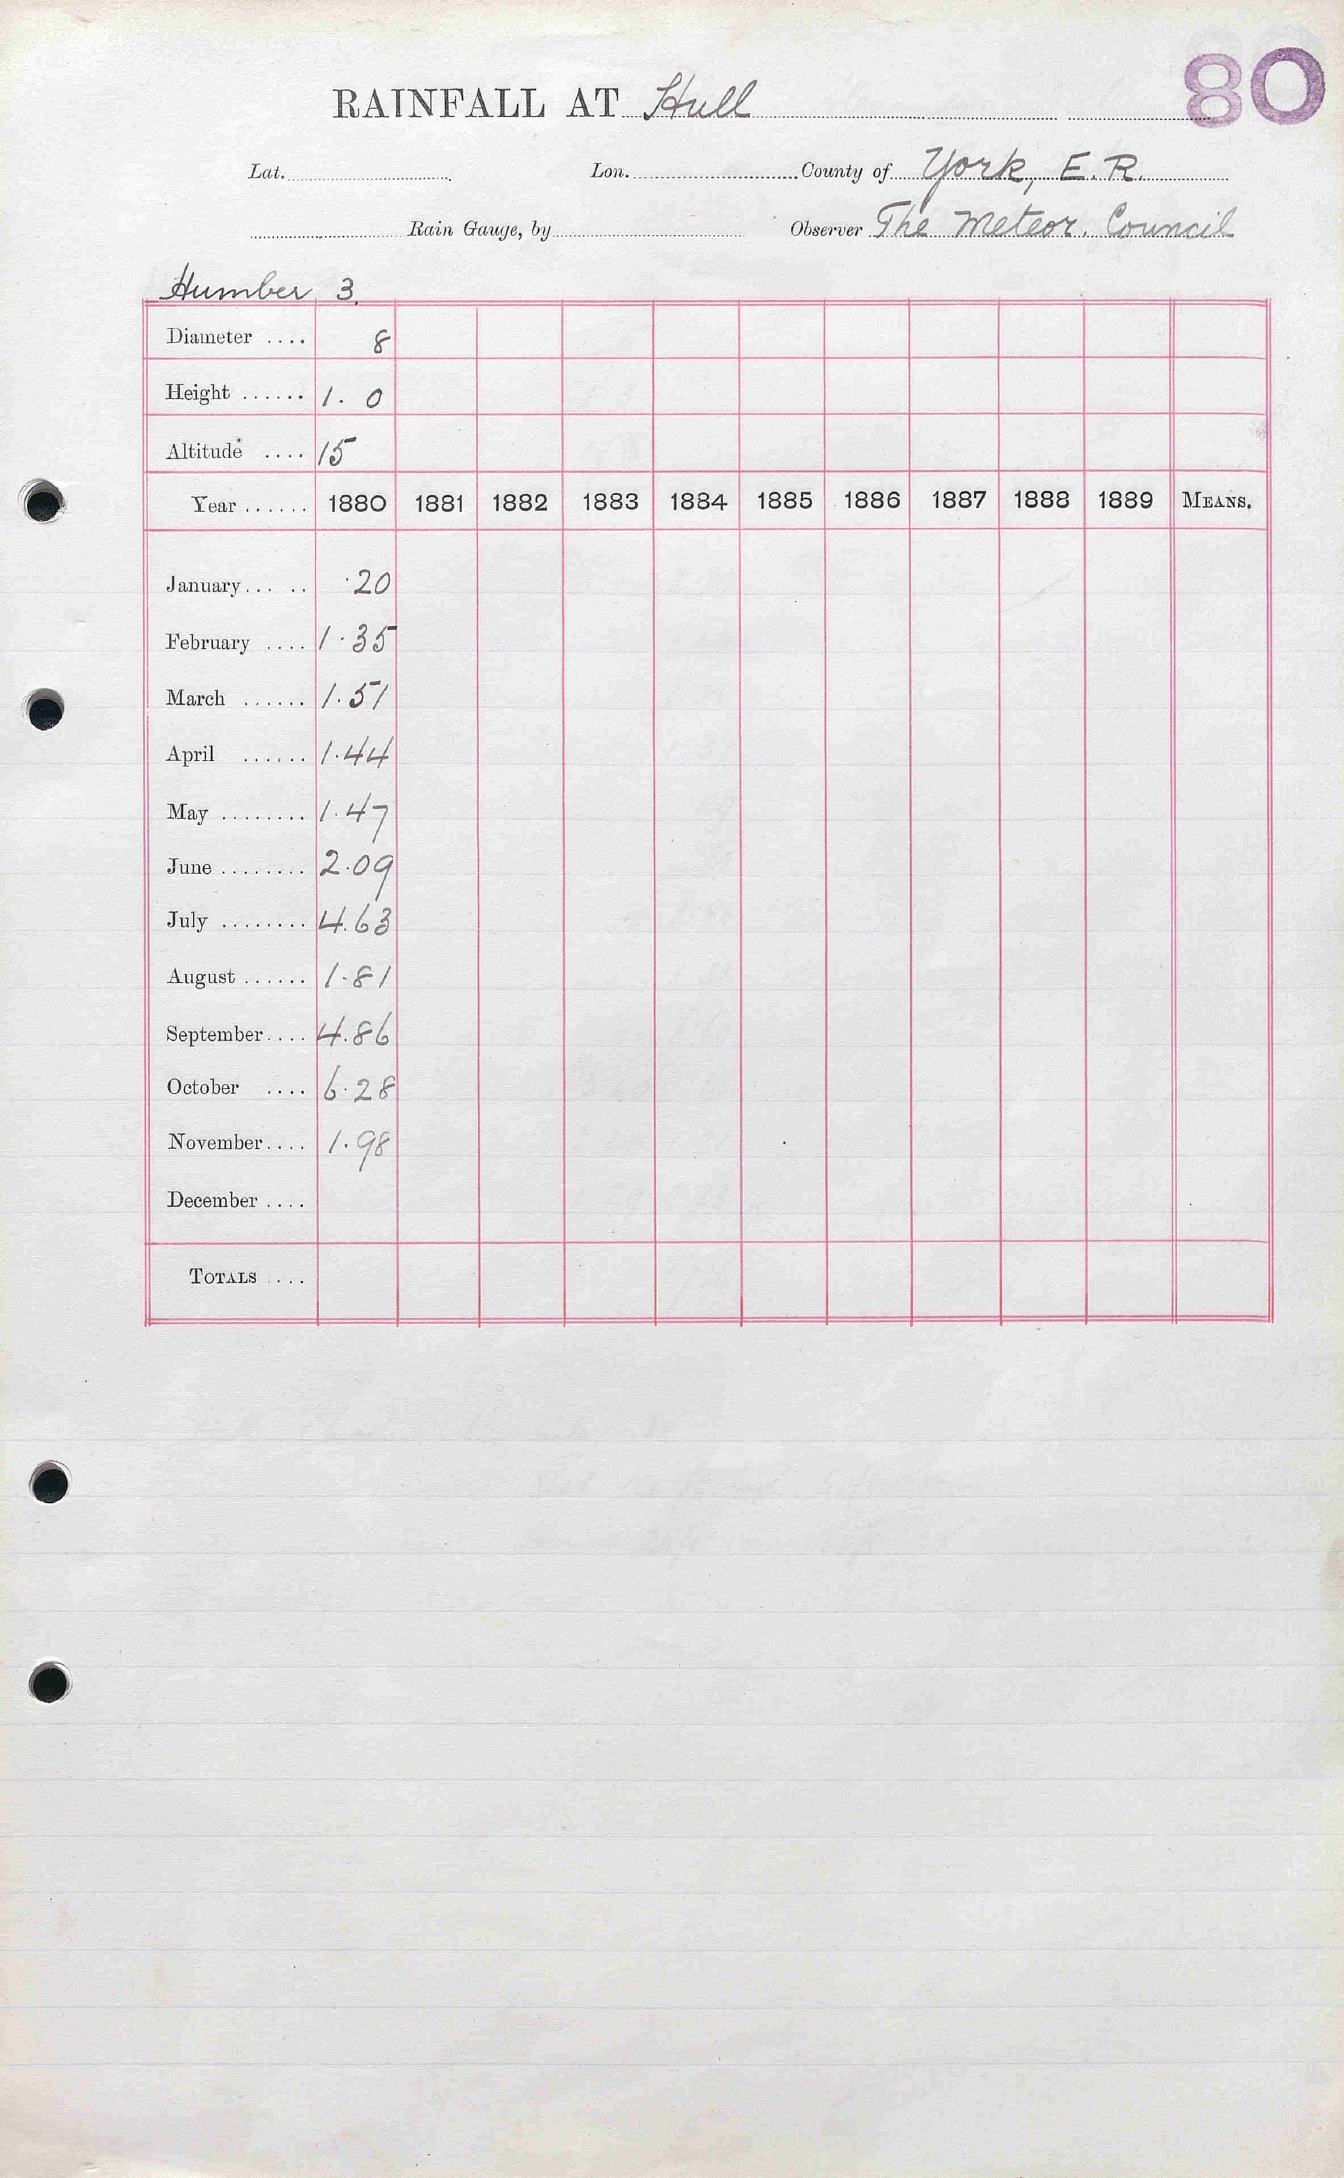 80
RAINFALL AT Hull
Lat. Lon. County of York, E. R.
Rain Gauge, by Observer The Meteor. Council
Humber 3.
Diameter .... 8
Height ...... 1. 0
Altitude .... 15
Year ...... 1880 1881 1882 1883 1884 1885 1886 1887 1888 1889 MEANS.
January... .. ·20
February .... 1·35
March ...... 1·51
April ...... 1·44
May ........ 1·47
June ........ 2·09
July ........ 4.63
August ...... 1·81
September.... 4.86
October .... 6·28
November.... 1·98
December ....
TOTALS ....